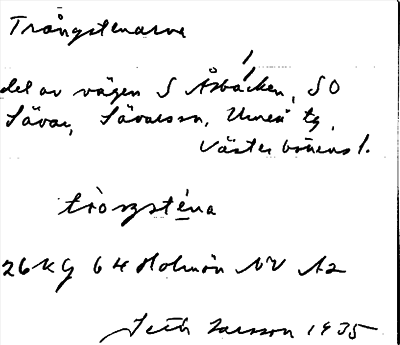 Trångstenarne
del av vägen S Åsbäcken, SO
Sävar, Sävars sn, Umeå tg,
Västerbottens l.
tròŋsténa
26 K g 64 Holmön NV A2
Seth Larsson 1935